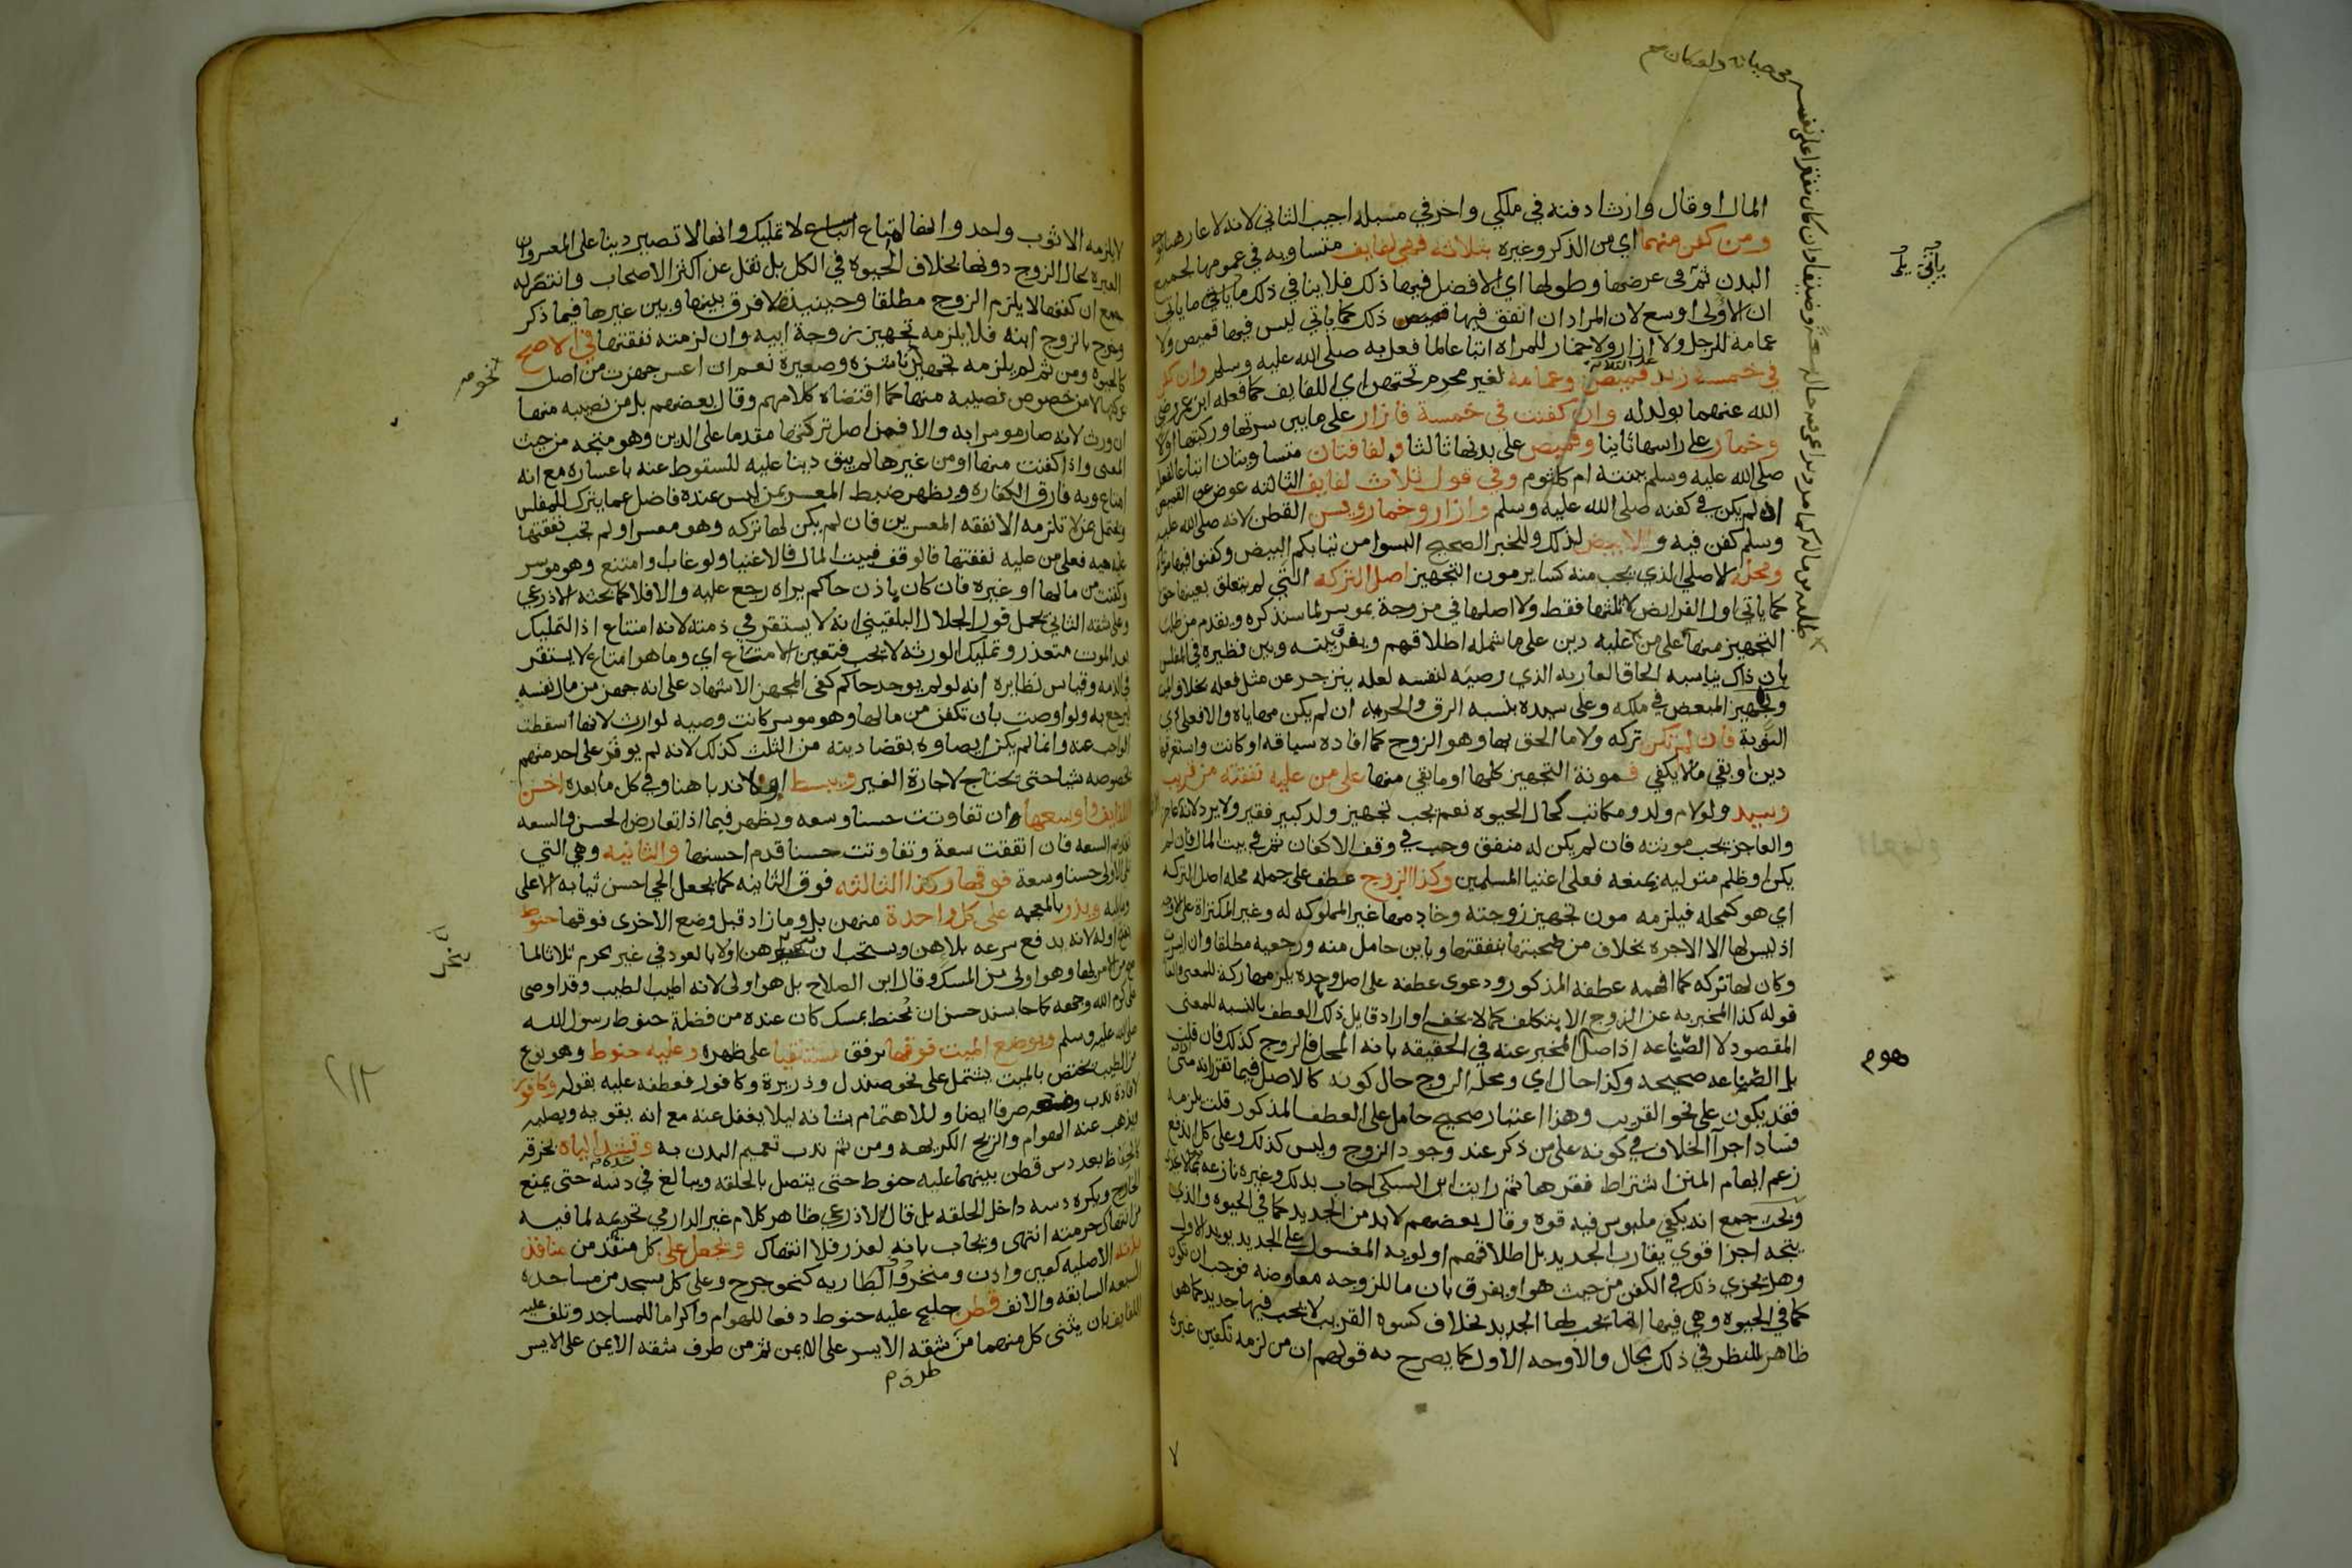 المال او قال وارث ادفنه في ملكي واخر في مسبله اجيب الثاني لانه لا عار هنا
ومن كفن منهما اي من الذكر وغيره بثلاثة فهي لفايف متساويه في عمومها لجميع
البدن ثم في عرضها وطولها اي الافضل فيها ذلك فلا ينافي ذلك ما ياتي
ان الاولى اوسع لان المراد ان اتفق فيها ذلك كما ياتي ليس فيها قميص ولا
عمامة للرجل ولا ازار ولا خمار للمراه اتباعا لما فعل به صلى الله عليه وسلم وان كفن
في خمسة زيد قميص وعمامة لغير محرم تحتهن اي اللفايف كما فعله ابن عمر رضي
الله عنهما بولد له وان كفنت في خمسة فازار على ما بين سرتها وركبتها اولا
وخمار على راسها ثانيا وقميص على بدنها ثالثا ولفافتان متساويتان اتباعا لفعله
صلى الله عليه وسلم ببنته ام كلثوم وفي قول ثلاث لفايف الثالثه عوض عن القميص
اذ لم يكن في كفنه صلى الله عليه وسلم وازار وخمار ويسن القطن لانه صلى الله عليه
وسلم كفن فيه والابيض لذلك وللخبر الصحيح البسوا من ثيابكم البيض وكفنوا فيها موتاكم
ومحله الاصلي الذي يجب منه كساير مون التجهيز اصل التركه التي لم يتعلق بعينها حق
كما ياتي اول الفرايض لا ثلثها فقط ولا اصلها في مزوجة بموسر لما سنذكره ويقدم من طلب
التجهيز منها على من عليه دين على ما شمله اطلاقهم ويفرق بينه وبين نظيره في المفلس
بان ذاك يناسبه الحاق العار به الذي رضيه لنفسه لعله ينزجر عن مثل فعله بخلاف الميت
وتجهيز المبعض في ملكه وعلى سيده بنسبه الرق والحريه ان لم يكن مهاياه والا فعلى ذي
النوبة فان لم تكن تركه ولا ما الحق بها وهو الزوج كما افاده سياقه او كانت واستغرقها
دين او بقي ما لا يكفي فمونة التجهيز كلها او ما بقي منها على من عليه نفقته من قريب
وسيد ولو لام ولد ومكاتب كحال الحيوه نعم يجب تجهيز ولد كبير فقير ولا يرد لانه عاجز
والعاجز يجب مونته فان لم يكن له منفق وجب في وقف الاكفان ثم في بيت المال فان لم
يكن او ظلم متوليه بمنعه فعلى اغنيا المسلمين وكذا الزوج عطف على جمله محله اصل التركه
اي هو كمحله فيلزمه مون تجهيز زوجته وخادمها غير المملوكه له وغير المكتراة على الاوجه
اذ ليس لها الا الاجره بخلاف من صحبتها بنفقتها وباين حامل منه ورجعيه مطلقا وان ايسرت
وكان لها تركه كما افهمه عطفه المذكور ودعوى عطفه على اصل وحده يلزمها ركة للمعنى
قوله كذا المخبر به عن الزوج الا بتكلف كما لا يخفى او اراد قايل ذلك العطف بالنسبه للمعنى
المقصود لا الصناعه اذ اصل المخبر عنه في الحقيقه بانه المحل فالزوج كذلك فان قلت
بل الصناعه صحيحه وكذا حال اي ومحله الزوج حال كونه كالاصل فيما تقرر انه متى
فقد يكون على نحو القريب وهذا اعتبار صحيح حامل على العطف المذكور قلت يلزمه
فساد اجرا الخلاف في كونه على من ذكر عند وجود الزوج وليس كذلك وعلى كل اندفع
زعم ايهام المتن اشتراط فقرها ثم رايت ابن السبكي اجاب بذلك وغيره نازعه
وبحث جمع انه يكفي ملبوس فيه قوه وقال بعضهم لا بد من الجديد كما في الحيوه والذي
يتجه اجزا قوي يقارب الجديد بل اطلاقهم اولويه المغسول على الجديد يويد الاول
وهل يجزي ذلك في الكفن من حيث هو او يفرق بان ما للزوجه معاوضه فوجب ان يكون
كما في الحيوه وهي فيها انما يجب لها الجديد بخلاف كسوه القريب لا يجب فيها جديد كما هو
ظاهر للنظر في ذلك مجال والاوجه الاول كما يصرح به قولهم ان من لزمه تكفين غيره
هوم
لا يلزمه الا ثوب واحد وانها امتاع لا تمليك وانها لا تصير دينا على المعسر وان
العبره بحال الزوج دونها بخلاف الحيوه في الكل بل نقل عن اكثر الاصحاب وانتصر له
جمع ان كفنها لا يلزم الزوج مطلقا وحينيذ فلا فرق بينها وبين غيرها فيما ذكر
وخرج بالزوج ابنه فلا يلزمه تجهيز زوجة ابيه وان لزمته نفقتها في الاصح
كالحيوه ومن ثم لم يلزمه تجهيز ناشزة وصغيرة نعم ان اعسر جهزت من اصل
تركتها لا من خصوص نصيبه منها كما اقتضاه كلامهم وقال بعضهم بل من نصيبه منها
ان ورث لانه صار موسرا به والا فمن اصل تركتها مقدما على الدين وهو متجه من حيث
المعنى واذا كفنت منها او من غيرها لم يبق دينا عليه للسقوط عنه باعساره مع انه
امتاع وبه فارق الكفاره ويظهر ضبط المعسر بمن ليس عنده فاضل عما يترك للمفلس
ويحتمل بمن لا تلزمه الا نفقه المعسرين فان لم يكن لها تركه وهو معسر او لم تجب نفقتها
عليه فعلى من عليه نفقتها فالوقف فبيت المال فالاغنيا ولو غاب او امتنع وهو موسر
وكفنت من مالها او غيره فان كان باذن حاكم يراه رجع عليه والا فلا كما بحثه الاذرعي
وعلى شقه الثاني يحمل قول الجلال البلقيني انه لا يستقر في ذمته لانه امتاع اذ التمليك
بعد الموت متعذر وتمليك الورثه لا يجب فتعين الامتاع اي وما هو امتاع لا يستقر
في الذمه وقياس نظايره انه لو لم يوجد حاكم كفى المجهز الاشهاد على انه جهز من مال نفسه
ليرجع به ولو اوصت بان تكفن من مالها وهو موسر كانت وصيه لوارث لانها اسقطت
الواجب عنه وانما لم يكن ايصاوه بقضا دينه من الثلث كذلك لانه لم يوفر على احد منهم
بخصوصه شيا حتى يحتاج لاجازة الغير ويبسط اولا ندبا هنا وفي كل ما بعده احسن
اللفايف واوسعها ان تفاوتت حسنا وسعه ويظهر فيما اذا تعارض الحسن والسعه
تقديم السعه فان اتفقت سعة وتفاوتت حسنا قدم احسنها والثانيه وهي التي
تلي الاولى حسنا وسعة فوقها وكذا الثالثه فوق الثانيه كما يجعل الحي احسن ثيابه الاعلى
ويذر بالمعجمه على كل واحدة منهن بل وما زاد قبل وضع الاخرى فوقها حنوط
بفتح اوله لانه يدفع سرعه بلاهن ويستحب ان تبخيرهن اولا بالعود في غير محرم ثلاثا لما
صح من الامر بها وهو اولى من المسك وقال ابن الصلاح بل هو اولى لانه اطيب الطيب وقد اوصى
علي كرم الله وجهه كما جا بسند حسن ان يحنط بمسك كان عنده من فضلة حنوط رسول الله
صلى الله عليه وسلم ويوضع الميت فوقها برفق مستلقيا على ظهره وعليه حنوط وهو نوع
من الطيب يختص بالميت يشتمل على نحو صندل وذريرة وكافور فعطفه عليه بقوله وكافور
لافادة ندب صرفا ايضا وللاهتمام بشانه ليلا يغفل عنه مع انه يقويه ويصلبه
ويذهب عنه الهوام والريح الكريهه ومن ثم ندب تعميم البدن به وتشد الياه بخرقه
كالحفاظ بعد دس قطن بينهما عليه حنوط حتى يتصل بالحلقه ويبالغ في شده حتى يمنع
الخارج ويكره دسه داخل الحلقه بل قال الاذرعي ظاهر كلام غير الدارمي تحريمه لما فيه
من انتهاك حرمته انتهى ويجاب بانه لعذر فلا انتهاك ويجعل على كل منفذ من منافذ
بدنه الاصليه كعين واذن ومنخر والطاريه كنحو جرح وعلى كل مسجد من مساجده
السبعه السابقه والانف قطن حليج عليه حنوط دفعا للهوام واكراما للمساجد وتلف عليه
اللفايف بان يثنى كل منهما من شقه الايسر على الايمن ثم من طرف شقه الايمن على الايسر
نحو
١١٢